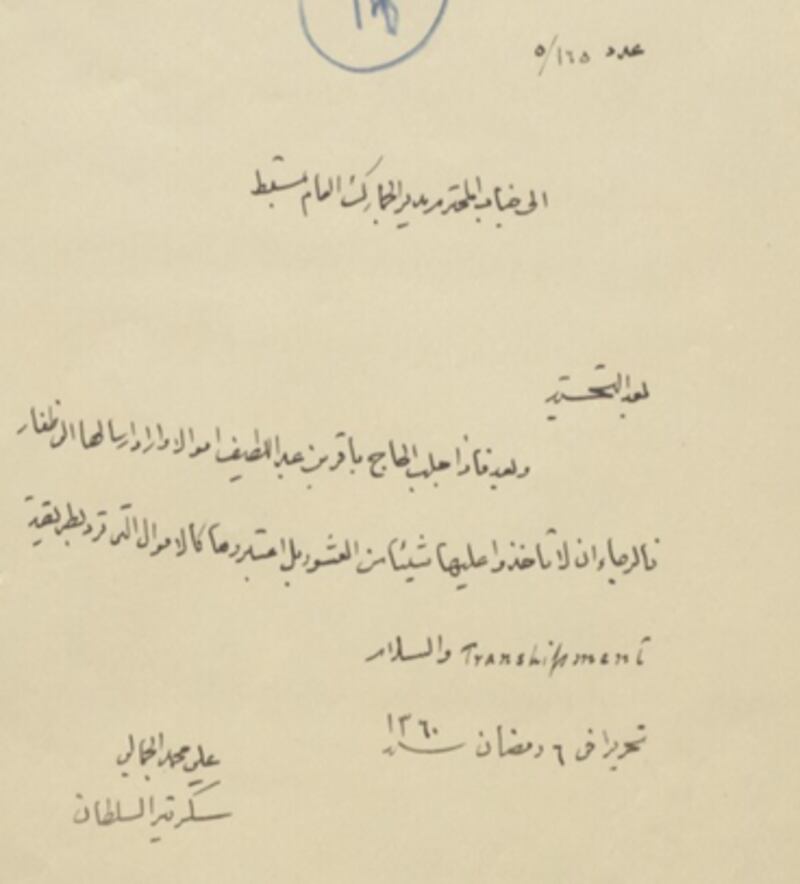 عدد ٥/١٦٥
الى جناب المحترم مدير الجمارك العام بمسقط
بعد التحية
وبعد فاذا جلب الحاج باقر بن عبد اللطيف اموالا واراد ارسالها الى ظفار
فالرجاء ان لا تاخذوا عليها شيئا من العشور بل اعتبروها كالاموال التى ترد بطريقة
Transhipment والسلام
تحريرا فى ٦ رمضان سنة ١٣٦٠
علي محمد الجمالي
سكرتير السلطان